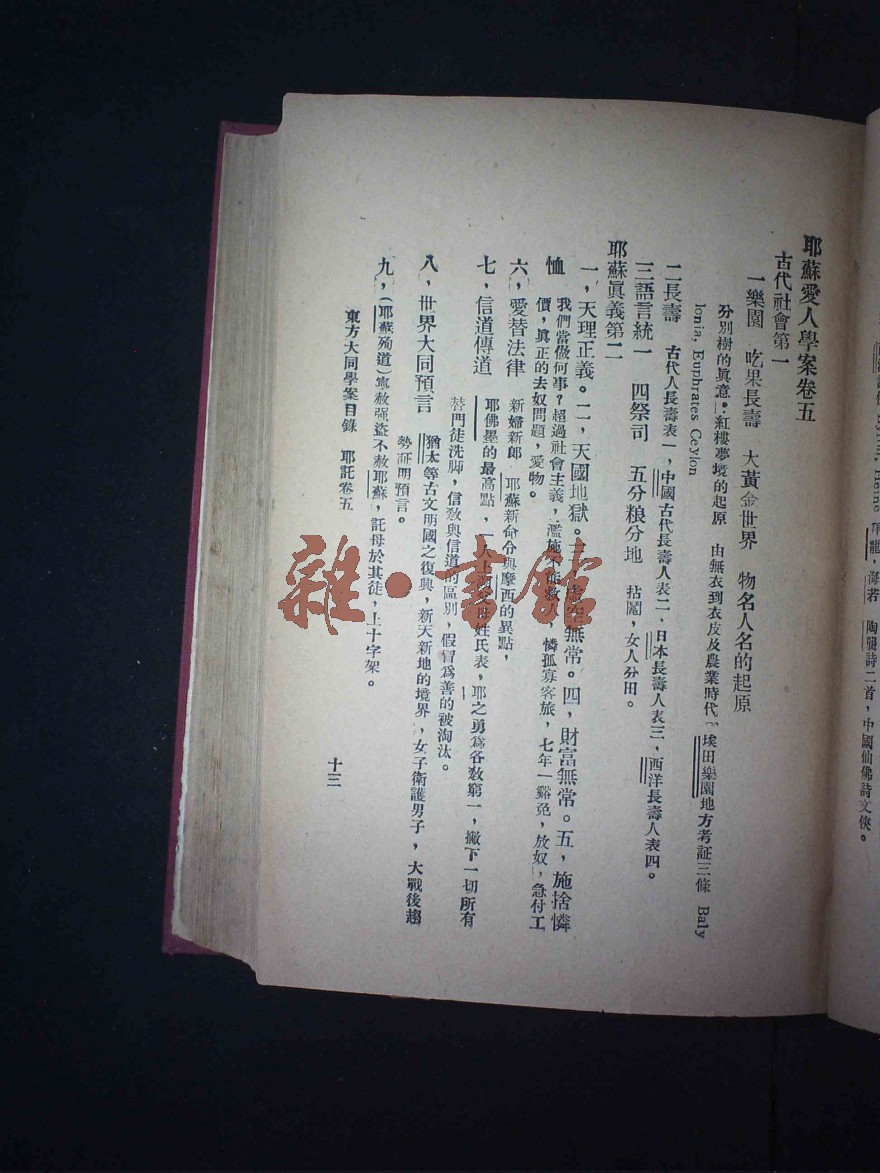 陶龔詩二首，中國仙佛詩文俠。
耶蘇愛人學案卷五
古代社會第一
一樂園 吃果長壽 大黃金世界 物名人名的起原
分別樹的眞意。紅樓夢境的起原 由無衣到衣皮及農業時代，埃田樂園地方考証三條 Baly
lonia, Euphrates Ceylon
二長壽 古代人長壽表一，中國古代長壽人表二，日本長壽人表三，西洋長壽人表四。
三語言統一 四祭司 五分粮分地 拈鬮，女人分田。
耶蘇眞義第二
一，天理正義。二，天國地獄。三，虛空無常。四，財富無常。五，施捨憐
恤 我們當做何事？超過社會主義，濫施不能救人，憐孤寡客旅，七年一豁免，放奴，急付工
價，眞正的去奴問題，愛物。
六，愛替法律 新婦新郎 耶蘇新命令與摩西的異點，
七，信道傳道 耶佛墨的最高點，一人上溯父母姓氏表，耶之勇爲各敎第一，撇下一切所有
替門徒洗脚，信敎與信道的區別，假冒爲善的被淘汰。
八，世界大同預言 猶太等古文明國之復興，新天新地的境界，女子衛護男子，大戰後趨
勢証明預言。
九，（耶蘇殉道）寧赦强盜不赦耶蘇，託母於其徒，上十字架。
東方大同學案目錄 耶託卷五 十三
雜·書館